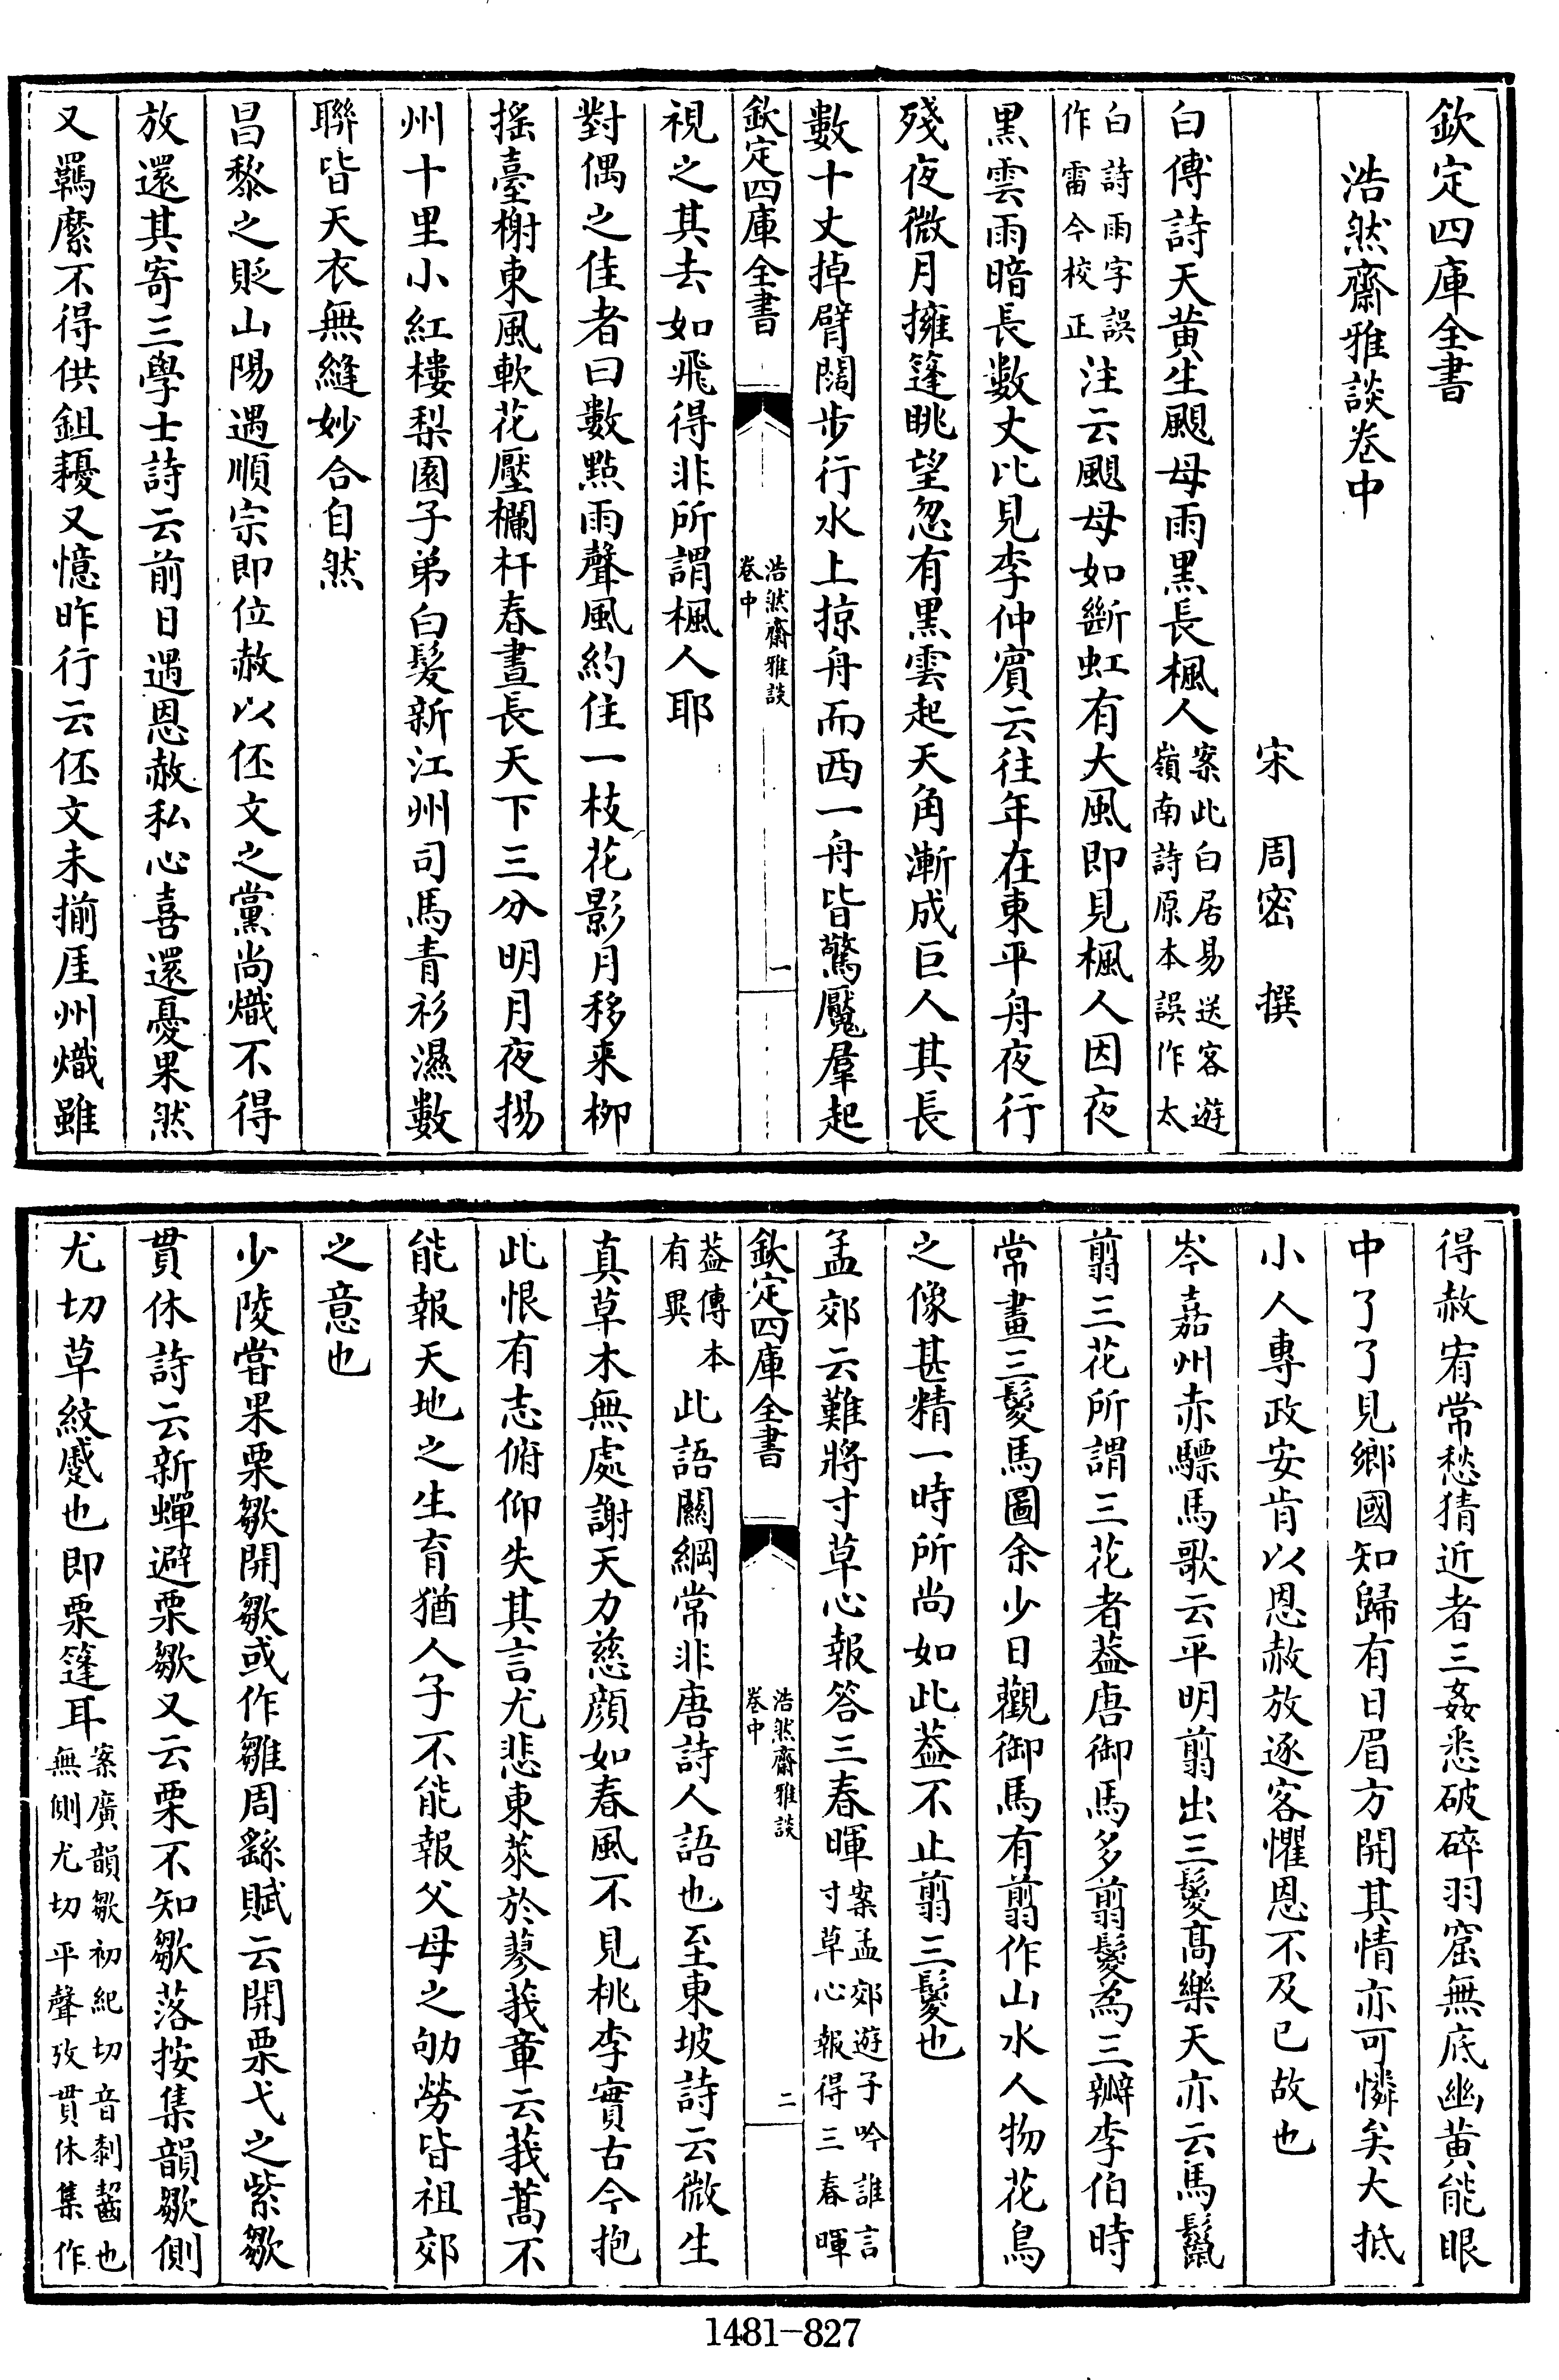 欽定四庫全書
浩然齋雅談卷中
宋 周密 撰
白傅詩天黃生颶母雨黑長楓人案此白居易送客遊嶺南詩原本誤作太
白詩雨字誤作雷今校正注云颶母如斷虹有大風即見楓人因夜
黑雲雨暗長數丈比見李仲賓云往年在東平舟夜行
殘夜微月擁篷眺望忽有黑雲起天角漸成巨人其長
數十丈掉臂闊步行水上掠舟而西一舟皆驚魘羣起
欽定四庫全書 浩然齋雅談卷中 一
視之其去如飛得非所謂楓人耶
對偶之佳者曰數點雨聲風約住一枝花影月移来柳
搖臺榭東風軟花壓欄杆春晝長天下三分明月夜揚
州十里小紅樓梨園子弟白髮新江州司馬青衫濕數
聯皆天衣無縫妙合自然
昌黎之貶山陽遇順宗即位赦以伾文之黨尚熾不得
放還其寄三學士詩云前日遇恩赦私心喜還憂果然
又羈縻不得供鉏耰又憶昨行云伾文未揃厓州熾雖
得赦宥常愁猜近者三姦悉破碎羽窟無底幽黃能眼
中了了見鄉國知歸有日眉方開其情亦可憐矣大抵
小人專政安肯以恩赦放逐客懼恩不及已故也
岑嘉州赤驃馬歌云平明翦出三鬉高樂天亦云馬鬣
翦三花所謂三花者葢唐御馬多翦鬉為三瓣李伯時
常畫三鬉馬圖余少日觀御馬有翦作山水人物花鳥
之像甚精一時所尚如此葢不止翦三鬉也
孟郊云難將寸草心報答三春暉案孟郊遊子吟誰言寸草心報得三春暉
欽定四庫全書 浩然齋雅談卷中 二
葢傳本有異此語關綱常非唐詩人語也至東坡詩云微生
真草木無處謝天力慈顏如春風不見桃李實古今抱
此恨有志俯仰失其言尤悲東萊於蓼莪章云莪蒿不
能報天地之生育猶人子不能報父母之劬勞皆祖郊
之意也
少陵嘗果栗皺開皺或作雛周繇賦云開栗弋之紫皺
貫休詩云新蟬避栗皺又云栗不知皺落按集韻皺側
尤切草紋蹙也即栗篷耳案廣韻皺初紀切音剨齧也無側尤切平聲攷貫休集作
1481-827